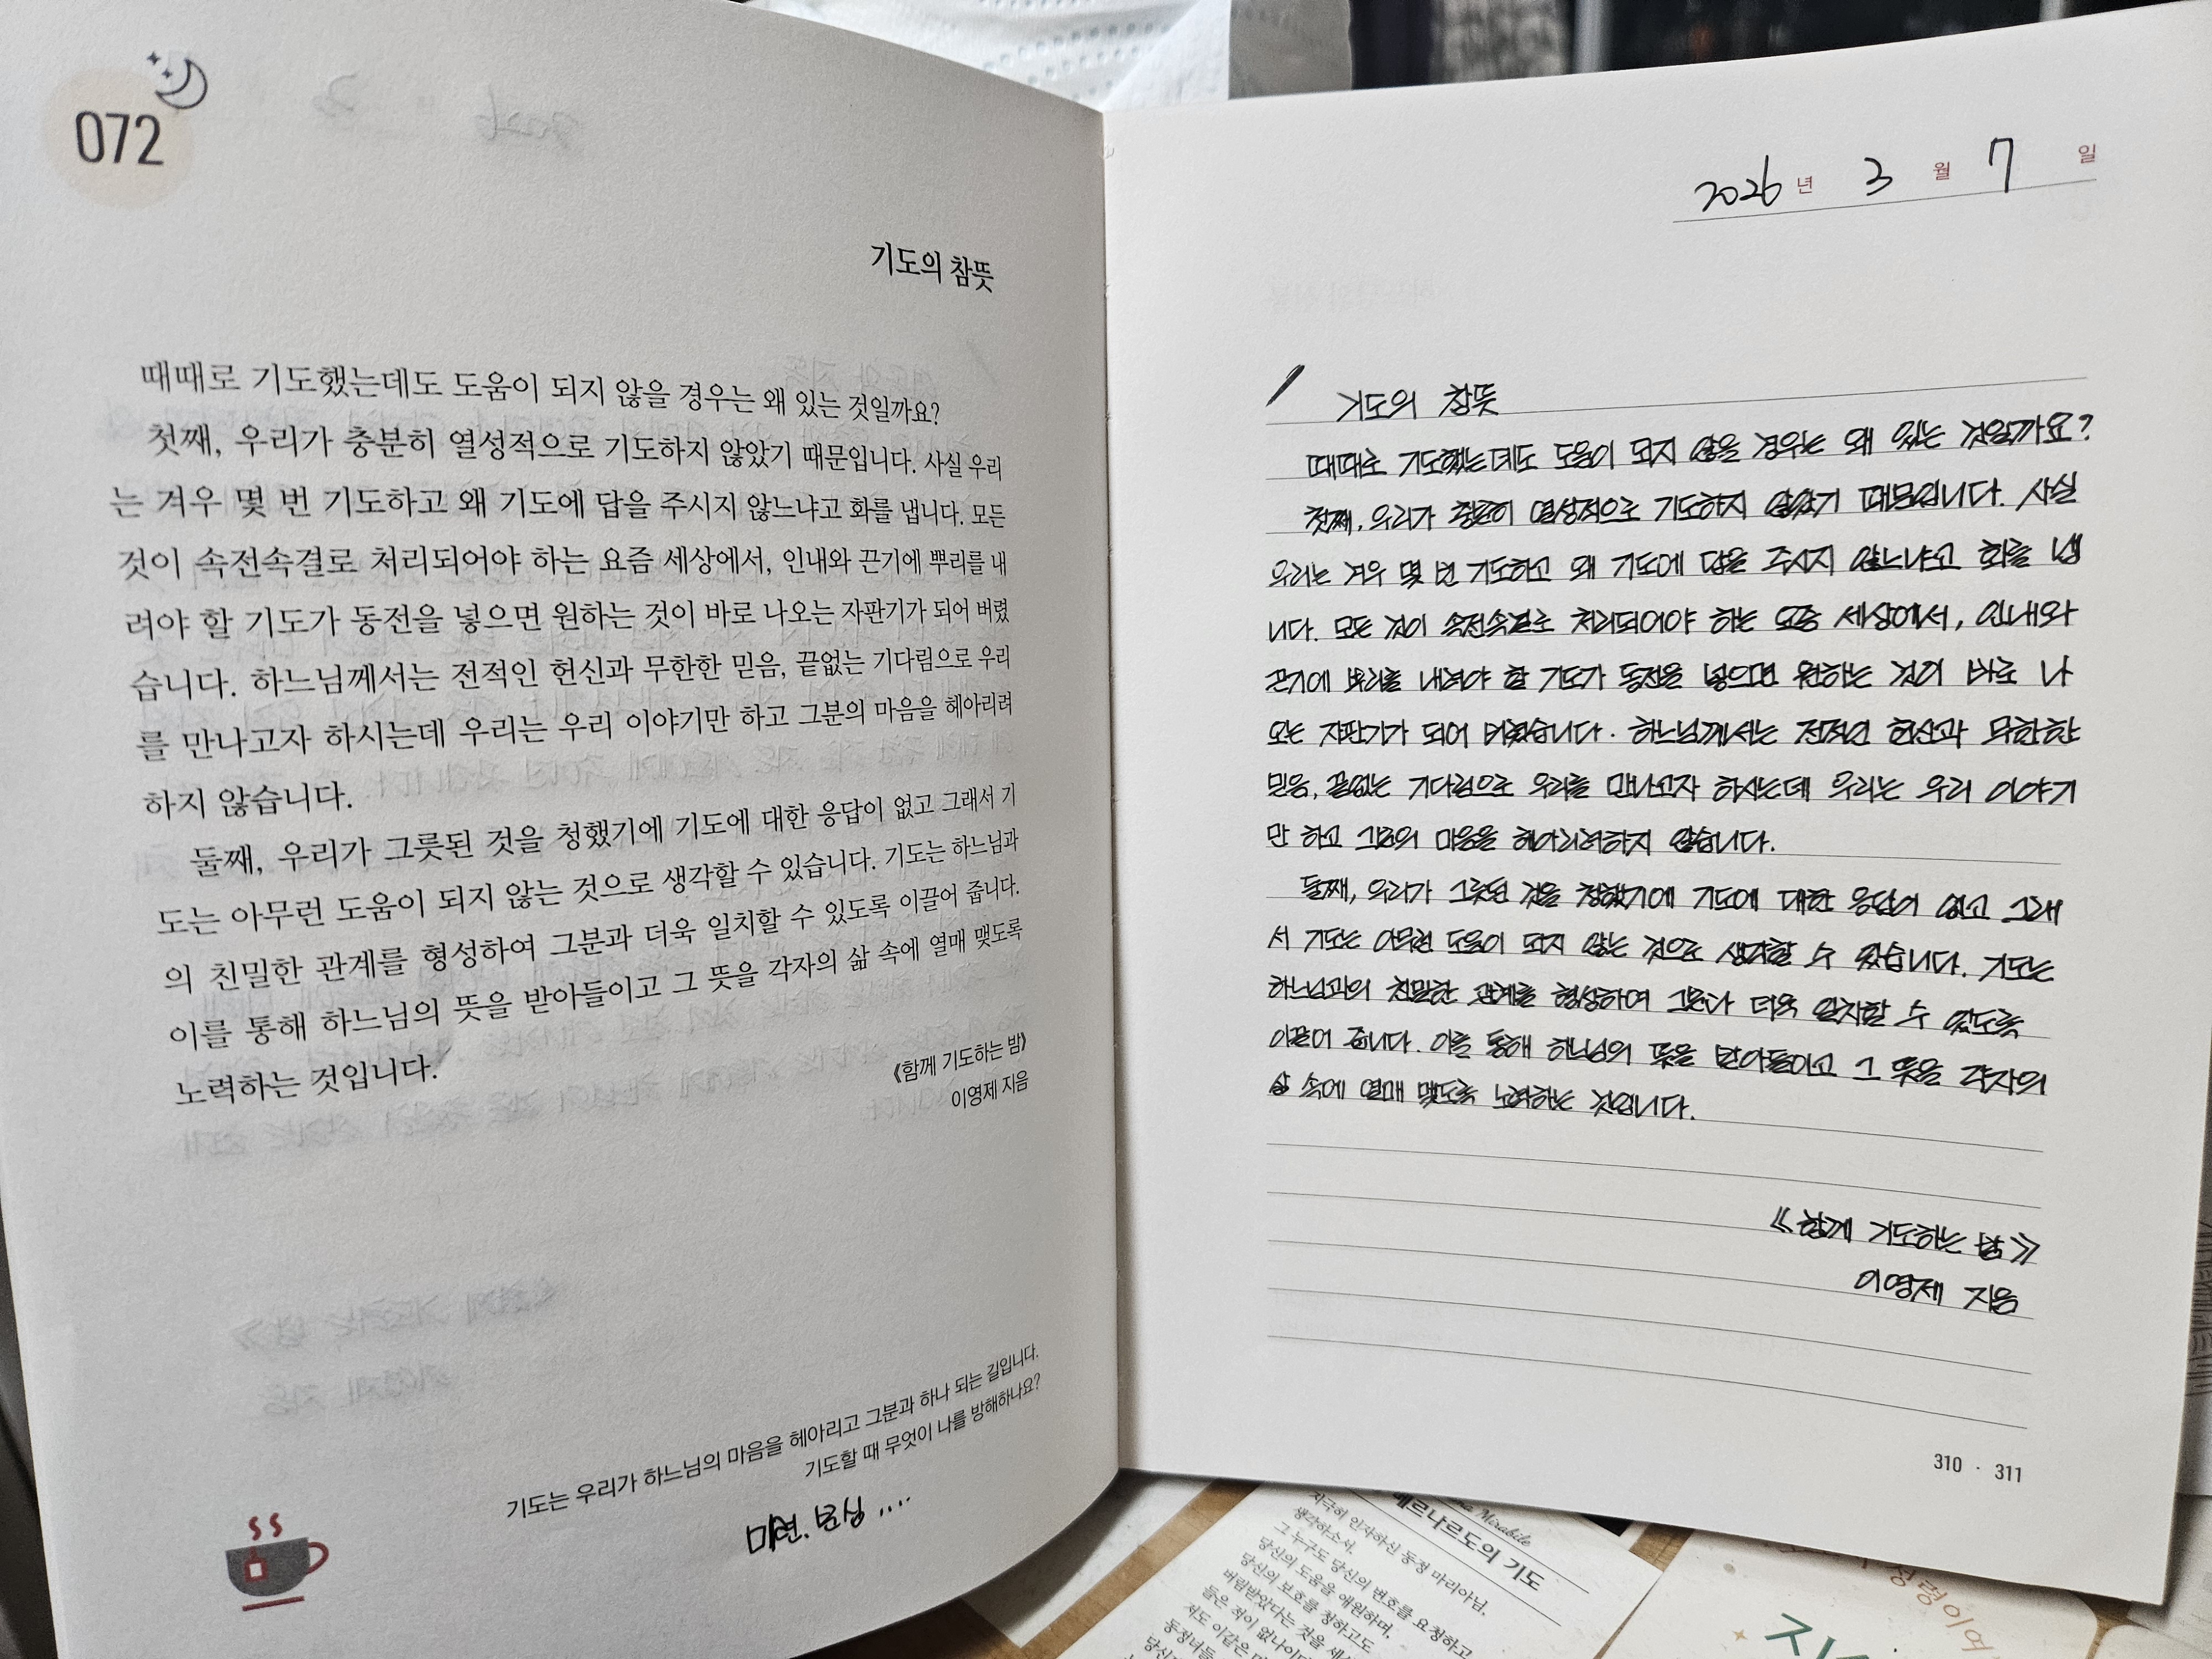 072
기도의 참뜻
때때로 기도했는데도 도움이 되지 않을 경우는 왜 있는 것일까요?
첫째, 우리가 충분히 열성적으로 기도하지 않았기 때문입니다. 사실 우리
는 겨우 몇 번 기도하고 왜 기도에 답을 주시지 않느냐고 화를 냅니다. 모든
것이 속전속결로 처리되어야 하는 요즘 세상에서, 인내와 끈기에 뿌리를 내
려야 할 기도가 동전을 넣으면 원하는 것이 바로 나오는 자판기가 되어 버렸
습니다. 하느님께서는 전적인 헌신과 무한한 믿음, 끝없는 기다림으로 우리
를 만나고자 하시는데 우리는 우리 이야기만 하고 그분의 마음을 헤아리려
하지 않습니다.
둘째, 우리가 그릇된 것을 청했기에 기도에 대한 응답이 없고 그래서 기
도는 아무런 도움이 되지 않는 것으로 생각할 수 있습니다. 기도는 하느님과
의 친밀한 관계를 형성하여 그분과 더욱 일치할 수 있도록 이끌어 줍니다.
이를 통해 하느님의 뜻을 받아들이고 그 뜻을 각자의 삶 속에 열매 맺도록
노력하는 것입니다.
《함께 기도하는 밤》
이영제 지음
기도는 우리가 하느님의 마음을 헤아리고 그분과 하나 되는 길입니다.
기도할 때 무엇이 나를 방해하나요?
2026년 3월 7일
기도의 참뜻
때때로 기도했는데도 도움이 되지 않을 경우는 왜 있는 것일까요?
첫째, 우리가 충분히 열성적으로 기도하지 않았기 때문입니다. 사실
우리는 겨우 몇 번 기도하고 왜 기도에 답을 주시지 않느냐고 화를 냅
니다. 모든 것이 속전속결로 처리되어야 하는 요즘 세상에서, 인내와
끈기에 뿌리를 내려야 할 기도가 동전을 넣으면 원하는 것이 바로 나
오는 자판기가 되어 버렸습니다. 하느님께서는 전적인 헌신과 무한한
믿음, 끝없는 기다림으로 우리를 만나고자 하시는데 우리는 우리 이야기
만 하고 그분의 마음을 헤아리려하지 않습니다.
둘째, 우리가 그릇된 것을 청했기에 기도에 대한 응답이 없고 그래
서 기도는 아무런 도움이 되지 않는 것으로 생각할 수 있습니다. 기도는
하느님과의 친밀한 관계를 형성하여 그분과 더욱 일치할 수 있도록
이끌어 줍니다. 이를 통해 하느님의 뜻을 받아들이고 그 뜻을 각자의
삶 속에 열매 맺도록 노력하는 것입니다.
《함께 기도하는 밤》
이영제 지음
310 · 311
베르나르도의 기도
지극히 인자하신 동정 마리아님,
생각하소서.
그 누구도 당신의 변호를 요청하고
당신의 도움을 애원하며,
당신의 보호를 청하고도
버림받았다는 것을
들은 적이 없나이다
저도 이같은